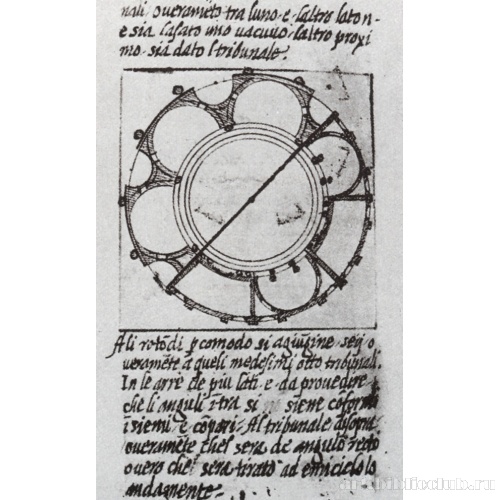 nali overamēto tra luno e laltro laton-
e sia lasato uno vacuuo laltro proxi
mo sia dato l tribunale.
Ali rotōdi p comodo si agiūgine sey o
veramēte a queli medesimi otto tribunali.
In le arre de piu lati e da provedire
che li anguli ītra si siene coforni
īsiemi e cōpari. Al tribunale
overamēte che sera de angulo reto
overo che sera tirato ad emiciclo lo
andamente.